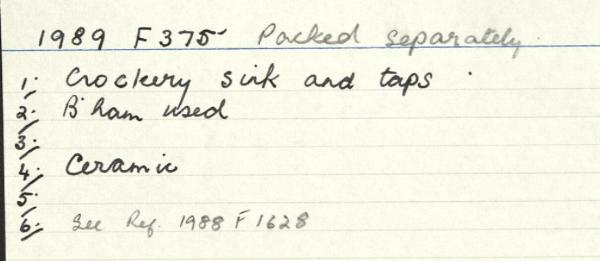 1989 F375 Packed separately.
1. Crockery sink and taps.
2. B'ham used
3.
4. Ceramic
5.
6. See Ref. 1988 F1628